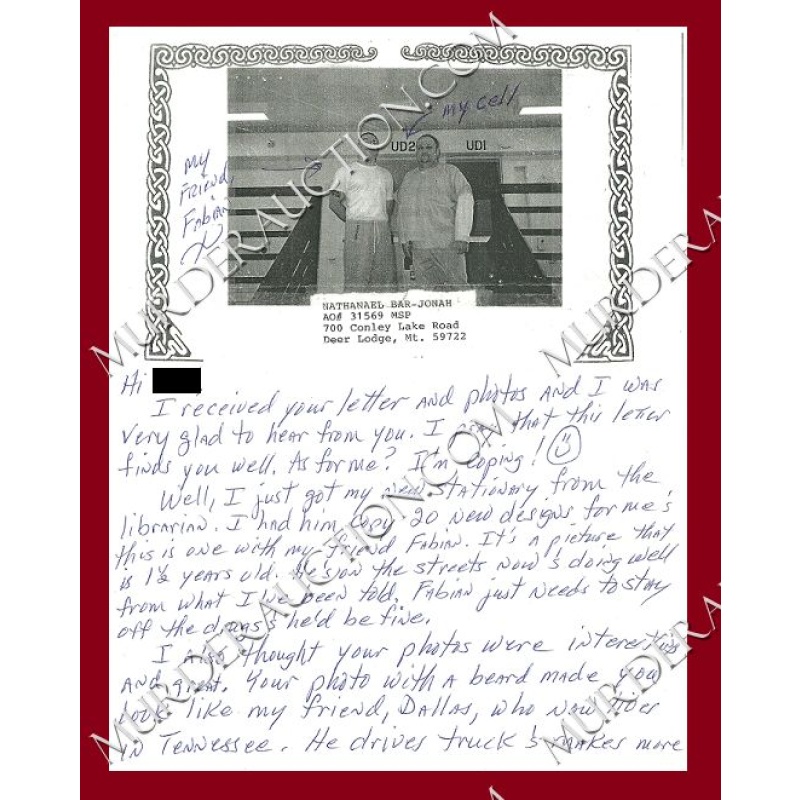 MURDERAUCTION.COM
my cell
UD2 UD1
my
Friend,
Fabian
NATHANAEL BAR-JONAH
AO# 31569 MSP
700 Conley Lake Road
Deer Lodge, Mt. 59722
Hi
I received your letter and photos and I was
very glad to hear from you. I pray that this letter
finds you well. As for me? I'm coping!
Well, I just got my new stationary from the
librarian. I had him copy 20 new designs for me &
this is one with my friend Fabian. It's a picture that
is 1½ years old. He's on the streets now & doing well
from what I've been told, Fabian just needs to stay
off the drugs & he'd be fine.
I also thought your photos were interesting
and great. Your photo with a beard made you
look like my friend, Dallas, who now lives
in Tennessee. He drives truck & makes more